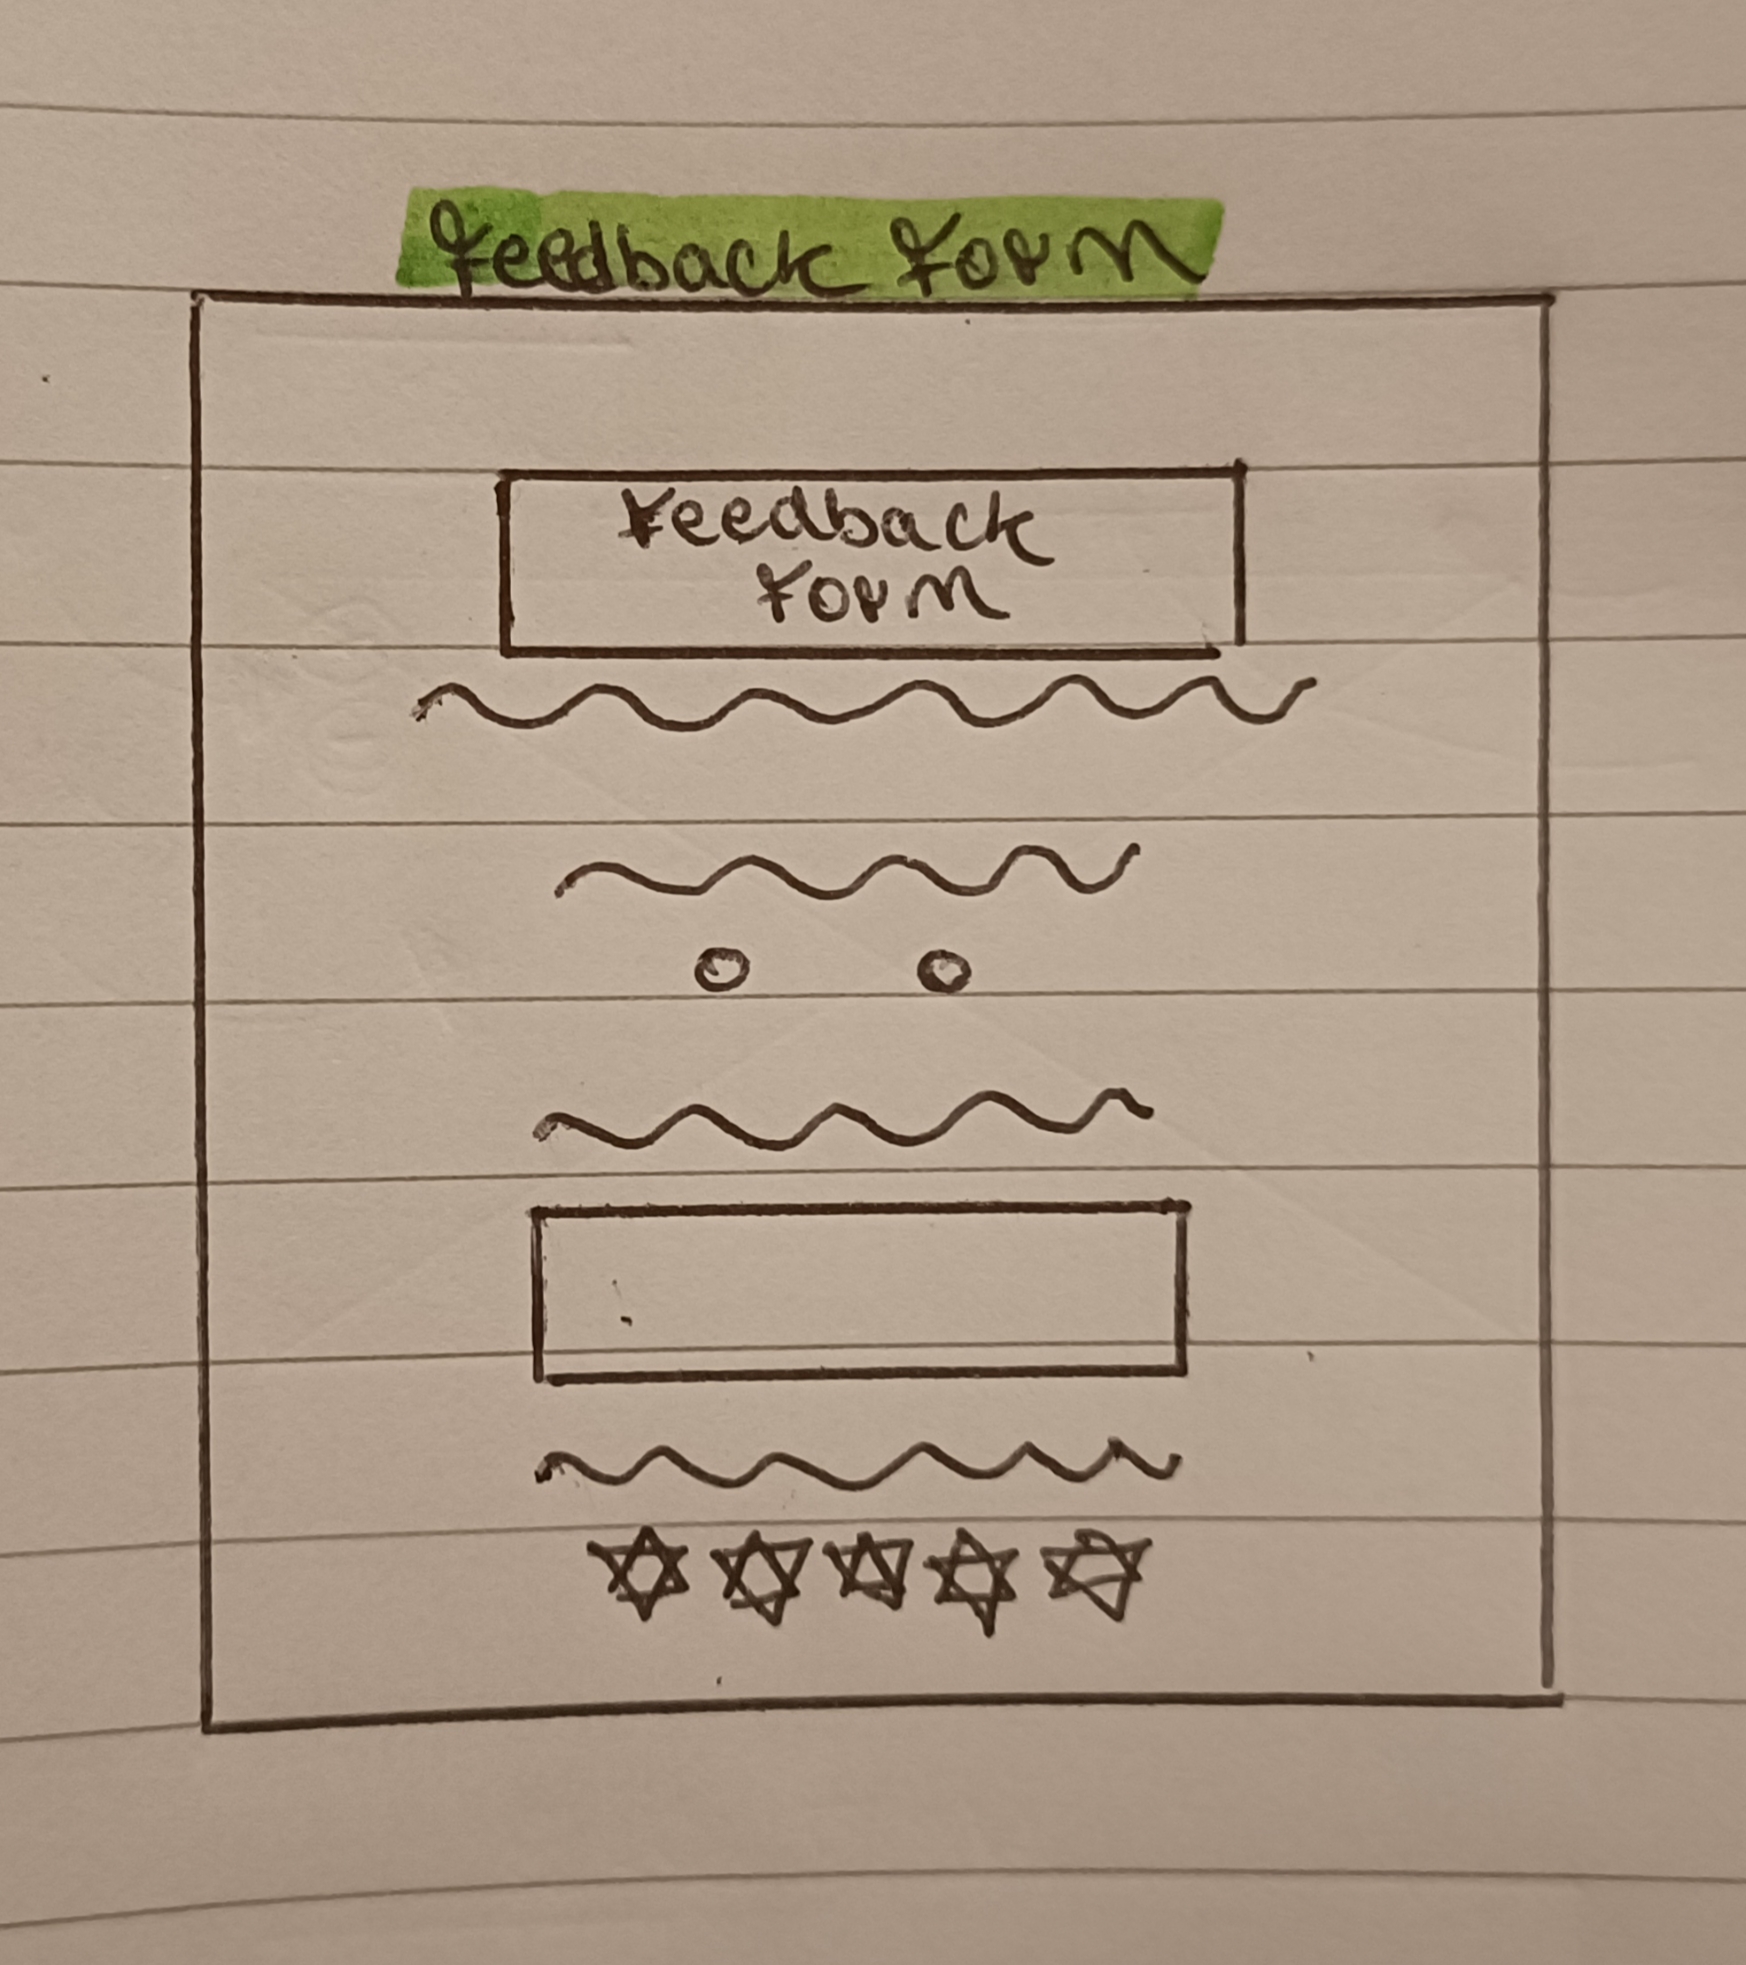 Feedback Form
Feedback
Form